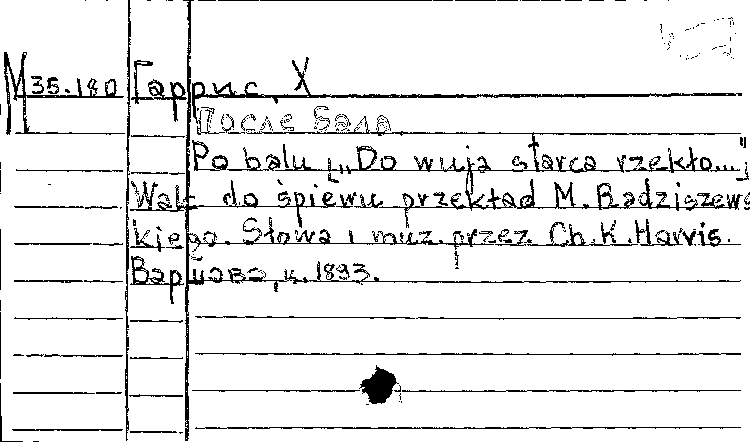 М 35.180 Гаррис, Х
После бала.
Po balu [„Do wuja starca rzekło..."]
Walc do śpiewu przekład M. Radziszews
kiego. Słowa i muz. przez Ch. K. Harris.
Варшава, ц. 1893.